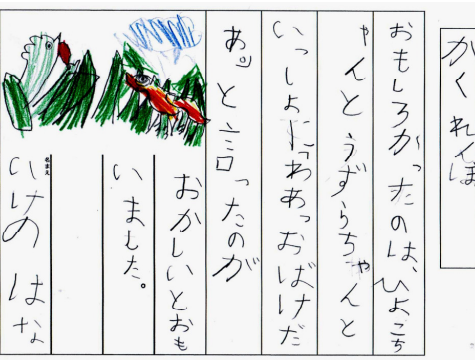 かくれんぼ
おもしろかったのは、ひよこち
ゃんとうずらちゃんと
いっしょに「わあっおばけだ
あ」と言ったのが
おかしいとおも
いました。
名まえ
いけの はな